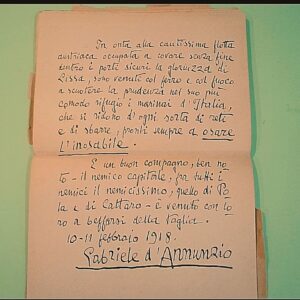 In onta alla cautissima flotta
austriaca occupata a covare senza fine
dentro i porti sicuri la gloriuzza di
Lissa, sono venuti col ferro e col fuoco
a scuotere la prudenza nel suo più
comodo rifugio i marinai d'Italia,
che si ridono d'ogni sorta di reti
e di sbarre, pronti sempre a osare
l'inosabile.
E un buon compagno, ben no-
to - il nemico capitale, fra tutti i
nemici il nemicissimo, quello di Po-
la e di Cattaro - è venuto con lo-
ro a beffarsi della taglia.
10-11 febbraio 1918.
Gabriele d'Annunzio